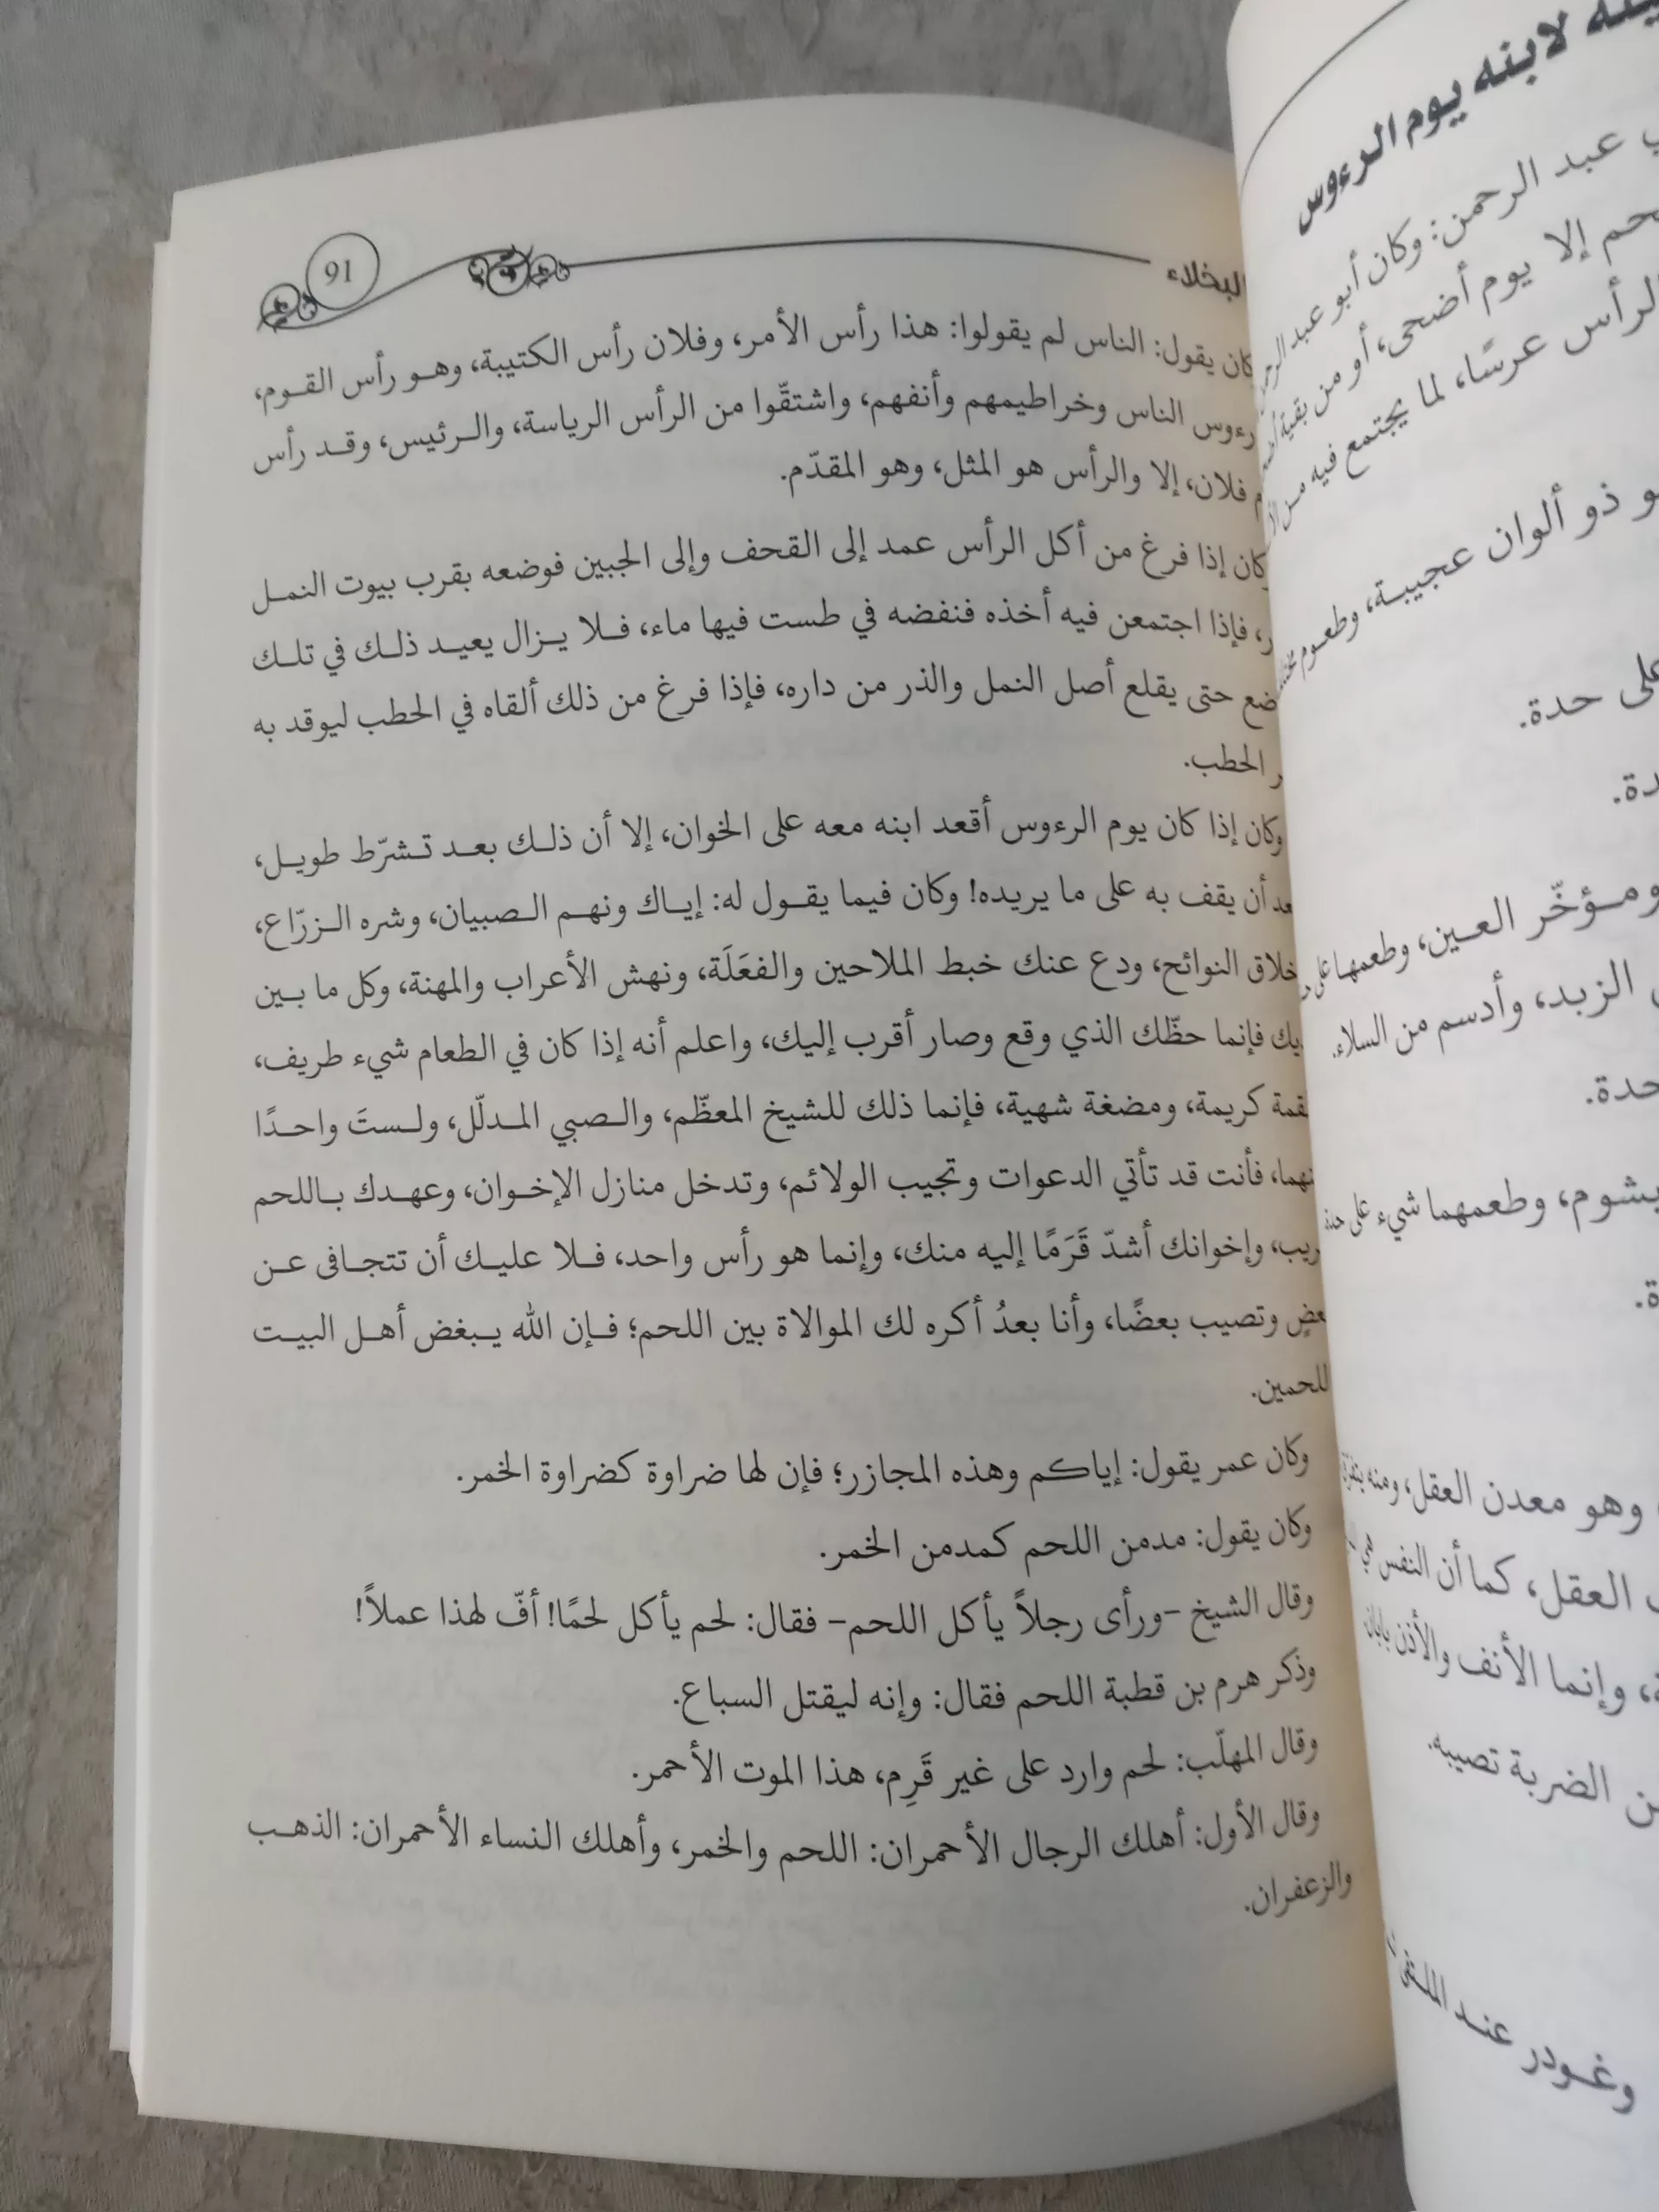 البخلاء
91
كان يقول: الناس لم يقولوا: هذا رأس الأمر، وفلان رأس الكتيبة، وهو رأس القوم،
رءوس الناس وخراطيمهم وأنفهم، واشتقّوا من الرأس الرياسة، والرئيس، وقد رأس
فلان، إلا والرأس هو المثل، وهو المقدّم.
كان إذا فرغ من أكل الرأس عمد إلى القحف وإلى الجبين فوضعه بقرب بيوت النمل
فإذا اجتمعن فيه أخذه فنفضه في طست فيها ماء، فلا يزال يعيد ذلك في تلك
ضع حتى يقلع أصل النمل والذر من داره، فإذا فرغ من ذلك ألقاه في الحطب ليوقد به
الحطب.
وكان إذا كان يوم الرءوس أقعد ابنه معه على الخوان، إلا أن ذلك بعد تشرّط طويل،
عد أن يقف به على ما يريده! وكان فيما يقول له: إياك ونهم الصبيان، وشره الزرّاع،
خلاق النوائح، ودع عنك خبط الملاحين والفعَلَة، ونهش الأعراب والمهنة، وكل ما بين
يك فإنما حظّك الذي وقع وصار أقرب إليك، واعلم أنه إذا كان في الطعام شيء طريف،
قمة كريمة، ومضغة شهية، فإنما ذلك للشيخ المعظّم، والصبي المدلّل، ولستَ واحدًا
نهما، فأنت قد تأتي الدعوات وتجيب الولائم، وتدخل منازل الإخوان، وعهدك باللحم
ريب، وإخوانك أشدّ قَرَمًا إليه منك، وإنما هو رأس واحد، فلا عليك أن تتجافى عن
عضٍ وتصيب بعضًا، وأنا بعدُ أكره لك الموالاة بين اللحم؛ فإن الله يبغض أهل البيت
للحمين.
وكان عمر يقول: إياكم وهذه المجازر؛ فإن لها ضراوة كضراوة الخمر.
وكان يقول: مدمن اللحم كمدمن الخمر.
وقال الشيخ -ورأى رجلاً يأكل اللحم- فقال: لحم يأكل لحمًا! أفّ لهذا عملاً!
وذكر هرم بن قطبة اللحم فقال: وإنه ليقتل السباع.
وقال المهلّب: لحم وارد على غير قَرِم، هذا الموت الأحمر.
وقال الأول: أهلك الرجال الأحمران: اللحم والخمر، وأهلك النساء الأحمران: الذهب
والزعفران.
لابنه يوم الرءوس
عبد الرحمن: وكان أبو عبد الرحمن
حم إلا يوم أضحى، أو من بقية
الرأس عرسًا، لما يجتمع فيه من
و ذو ألوان عجيبة، وطعوم
على حدة.
دة.
ومؤخّر العين، وطعمها على
الزبد، وأدسم من السلاء.
حدة.
يشوم، وطعمهما شيء على حدة
ة.
وهو معدن العقل، ومنه
العقل، كما أن النفس هي
وإنما الأنف والأذن بابان
ن الضربة تصيبه.
وغودر عند الملتقى